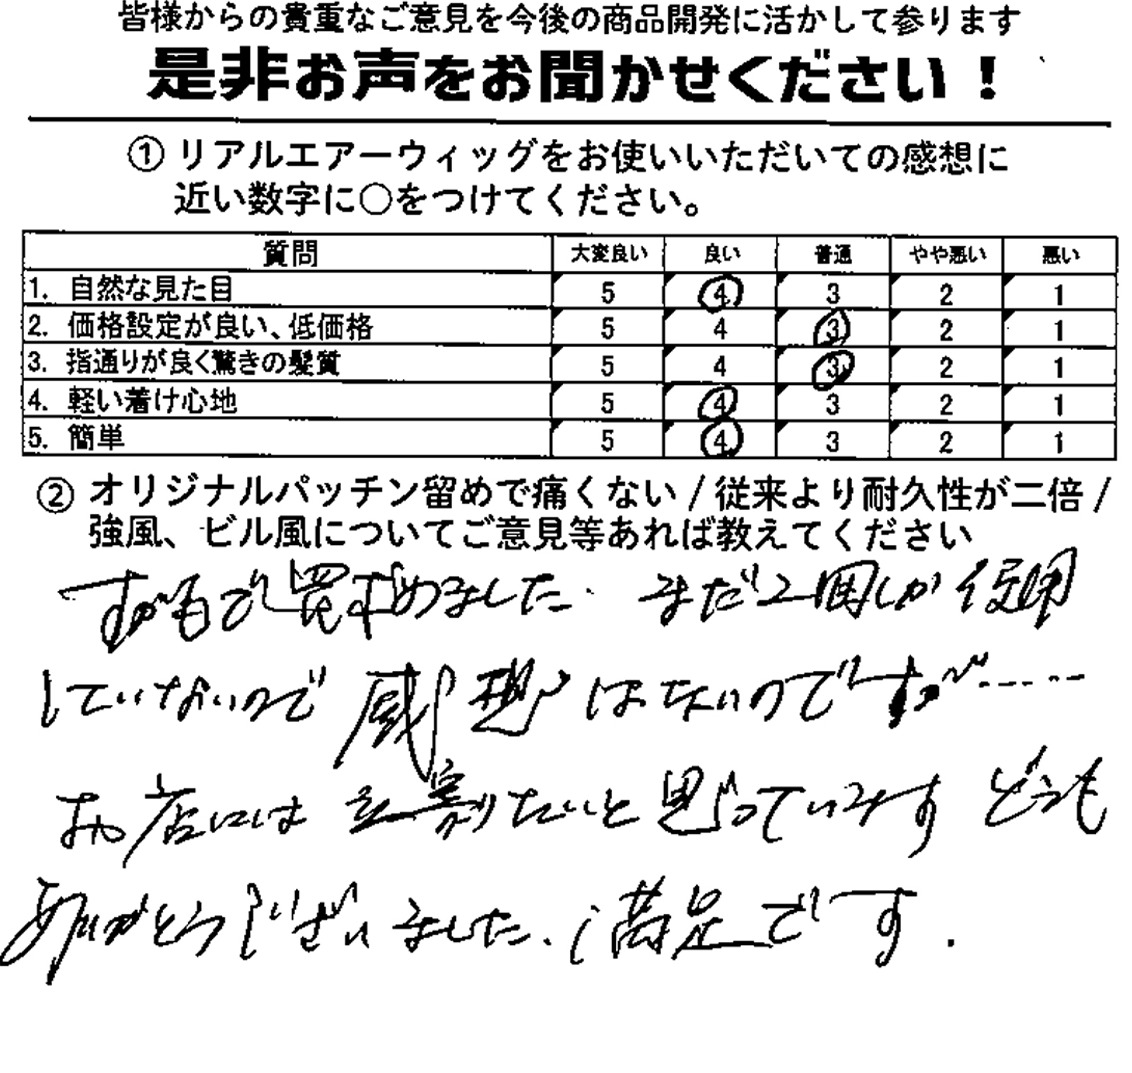 皆様からの貴重なご意見を今後の商品開発に活かして参ります
是非お声をお聞かせください！
① リアルエアーウィッグをお使いいただいての感想に
近い数字に○をつけてください。
質問 大変良い 良い 普通 やや悪い 悪い
1. 自然な見た目 5 4 3 2 1
2. 価格設定が良い、低価格 5 4 3 2 1
3. 指通りが良く驚きの髪質 5 4 3 2 1
4. 軽い着け心地 5 4 3 2 1
5. 簡単 5 4 3 2 1
② オリジナルパッチン留めで痛くない / 従来より耐久性が二倍 /
強風、ビル風についてご意見等あれば教えてください
すがもで買求めました. まだ2回しか使用
していないので 感想はないのですが……
お店には 思っています どうも
ありがとうございました. 満足です.